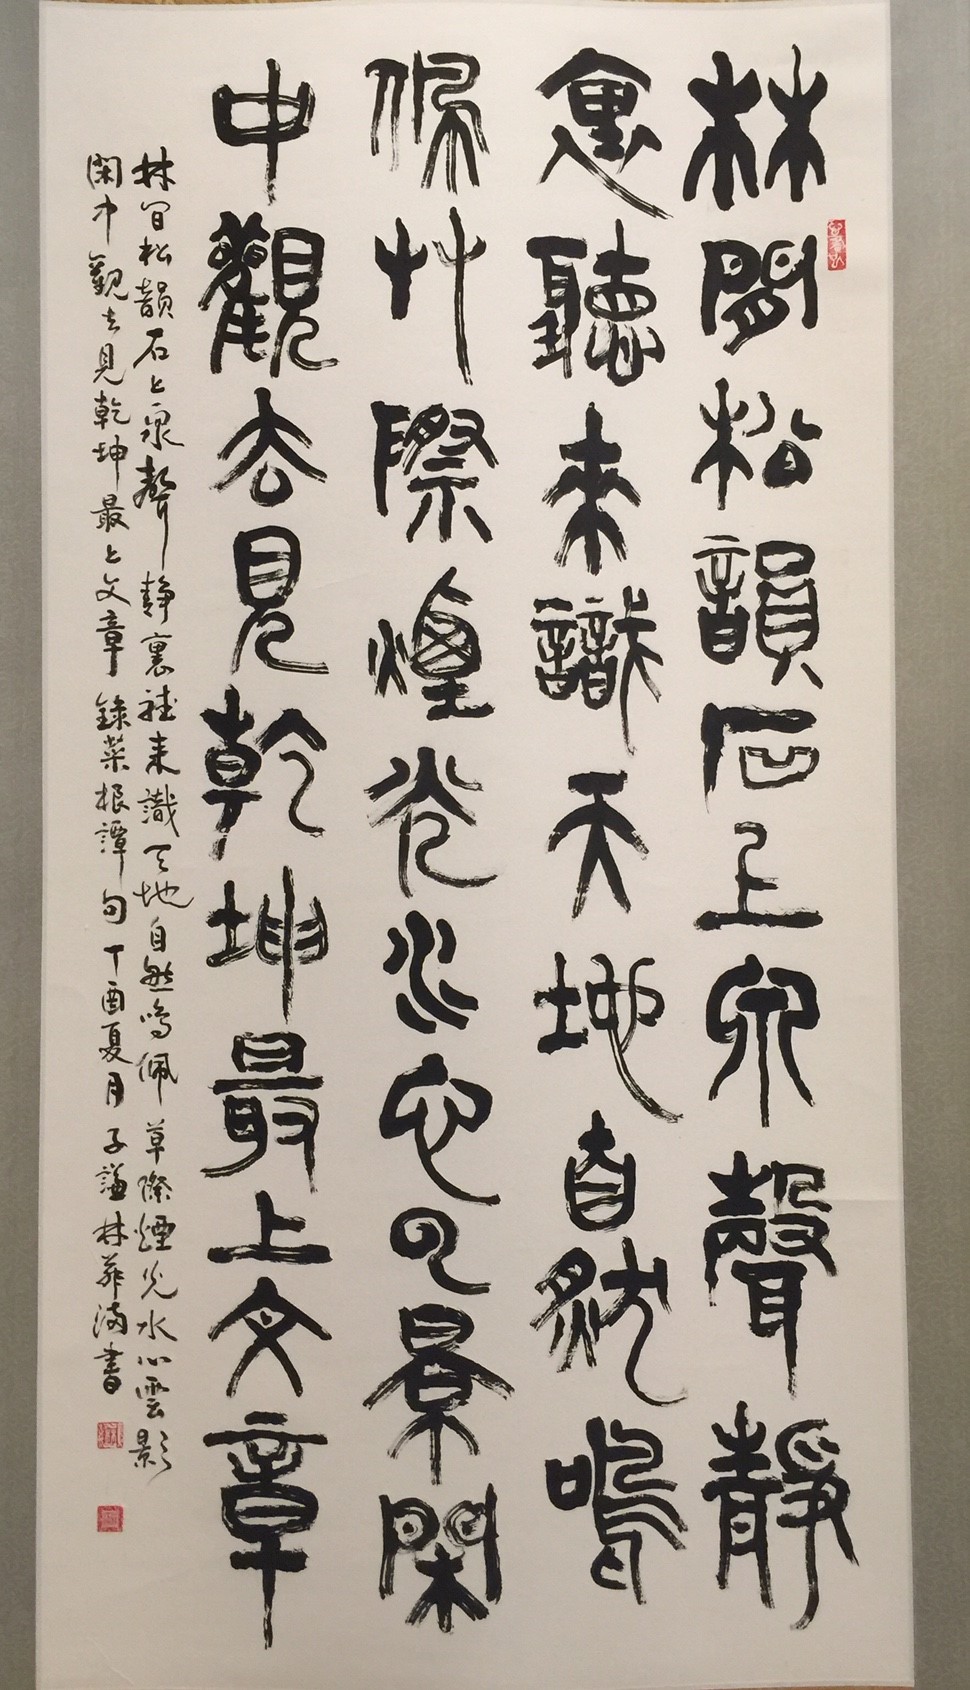 林間松韻石上泉聲靜
裏聽來識天地自然鳴
佩艸際煙光水心雲景閑
中觀去見乾坤最上文章
林间松韻石上泉聲靜裏聽来識天地自然鳴佩草際煙光水心雲影
閑中觀去見乾坤最上文章錄菜根譚句丁酉夏月子謙林 書